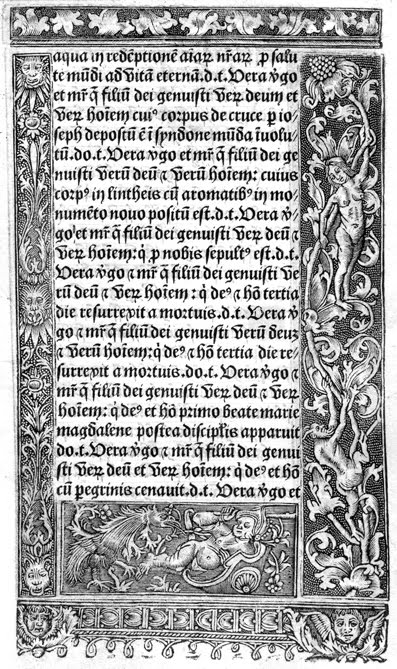 aqua in redēptionē aīaꝝ nr̄aꝝ ꝓ salu
te mūdi ad vitā eternā.d.t. Vera v̄go
et mr̄ q̄ filiū dei genuisti veꝝ deum et
veꝝ hoīem cuiꝰ corpus de cruce ꝑ io
seph depositū ē ī syndone mūda īuolu
tū.do.t. Vera v̄go et mr̄ q̄ filiū dei ge
nuisti verū deū ⁊ verū hoīem: cuius
corpꝰ in lintheis cū aromatibꝰ in mo
numēto nouo positū est.d.t. Vera v̄
go et mr̄ q̄ filiū dei genuisti veꝝ deū ⁊
veꝝ hoīem: q̇ ꝓ nobis sepultꝰ est.d.t.
Vera v̄go ⁊ mr̄ q̄ filiū dei genuisti ve
rū deū ⁊ veꝝ hoīem: q̇ deꝰ ⁊ hō tertia
die resurrexit a mortuis.d.t. Vera v̄
go ⁊ mr̄ q̄ filiū dei genuisti verū deuꝫ
⁊ verū hoīem: q̇ deꝰ ⁊ hō tertia die re
surrexit a mortuis.do.t. Vera v̄go ⁊
mr̄ q̄ filiū dei genuisti veꝝ deū ⁊ veꝝ
hoīem: q̇ deꝰ et hō primo beate marie
magdalene postea disciplīs apparuit
do.t. Vera v̄go ⁊ mr̄ q̄ filiū dei genui
sti veꝝ deū et veꝝ hoīem: q̇ deꝰ et hō
cū ꝑegrinis cenauit.d.t. Vera v̄go et